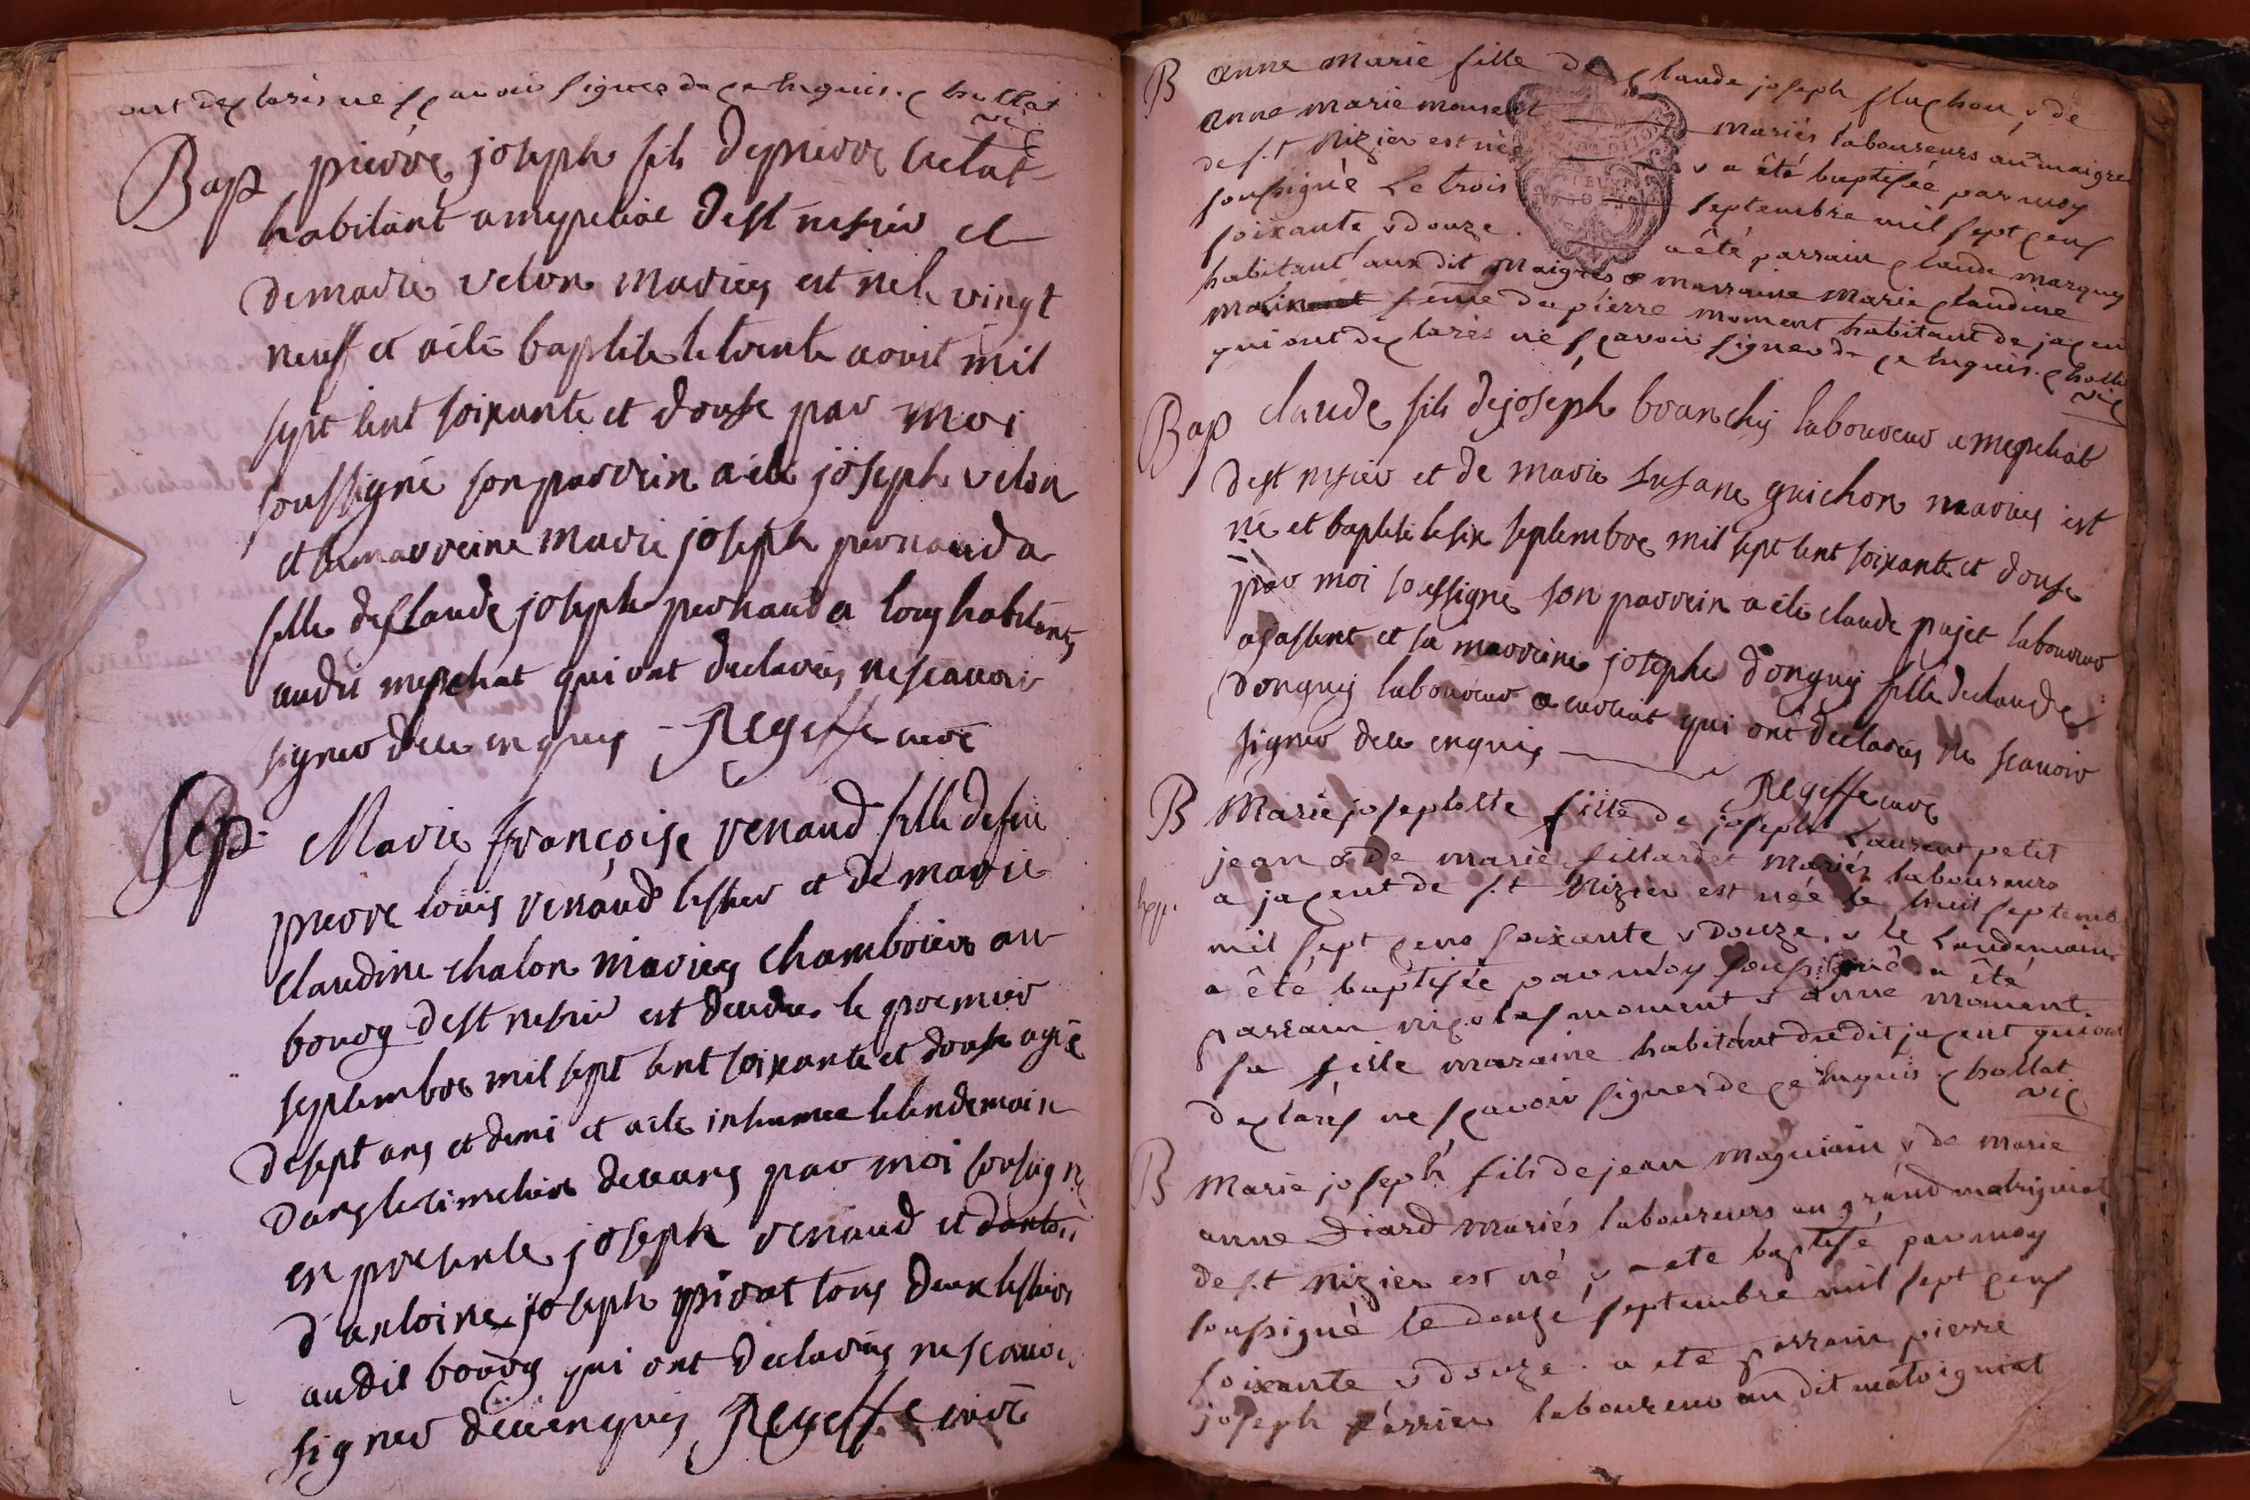 ont declarés ne scavoir signer de ce Enquis. chollat
vic
Bap pierre joseph fils de pierre
habitant a mepeliat de st nisier et
de marie velon maries est né le vingt
neuf et a ete baptise le trente aoust mil
sept cent soixante et douse par moi
soussigné son parrein a ete joseph velon
et sa marreine marie joseph pernaud a
fille de claude joseph pernaud a tous habitants
audit mepeliat qui ont declarés ne scavoir
signer de ce enquis Regeffe curé
Sep. Marie françoise renaud fille de feu
pierre louis renaud et de marie
claudine chalon maries au
bourg de st nisier est decedée le premier
septembre mil sept cent soixante et douse agée
de sept ans et demi et a ete inhumee le lendemain
dans le cimetiere de ceans par moi soussigné
en presence joseph renaud et
d'antoine joseph tous deux
audit bourg qui ont declarés ne scavoir
signer de ce enquis Regeffe curé
B anne marie fille de claude joseph fluchon & de
anne marie moment mariés laboureurs au maigre
de s.t Nizier est née & a été baptisée par moy
soussigné Le trois septembre mil sept cens
soixante & douze. a été parrain claude marguy
habitant aux dit Maigres & marraine Marie claudine
feme de pierre moment habitant de jacen
qui ont declarés ne scavoir signer de ce Enquis. chollat
vic
Bap claude fils de joseph branchy laboureur a mepeliat
de st nisier et de marie susane guichon maries est
né et baptisé le six septembre mil sept cent soixante et douse
par moi soussigné son parrein a ete claude pujet laboureur
et sa marreine josephe donguy fille de claude
donguy laboureur a qui ont declarés ne scavoir
signer de ce enquis
Regeffe curé
B Marie josephette fille de joseph Laurent petit
jean & de marie fillardet mariés laboureurs
a jacent de s.t Nizier est née le huit septemb
mil sept cens soixante & douze, & le Landemain
a été baptisée par moy soussigné. a été
parrain nicolas moment & anne moment
sa fille maraine habitant dudit jacent qui ont
declarés ne scavoir signer de ce Enquis. chollat
vic
B Marie joseph fils de jean & de marie
anne Diard mariés laboureurs au grand matrigniat
de s.t Nizier est né & a eté baptisé par moy
soussigné le douze septembre mil sept cens
soixante & douze. a eté parrain pierre
joseph perrier laboureur au dit matrigniat